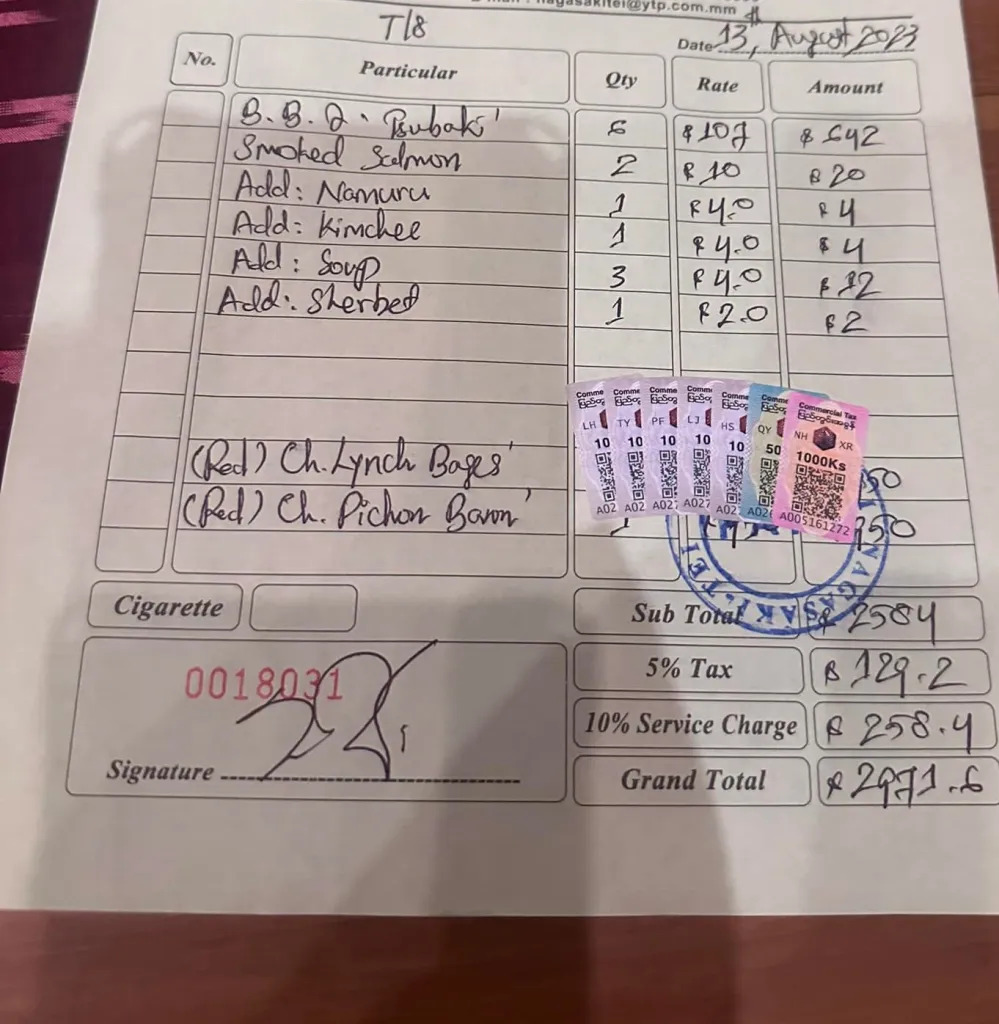 nagasakitei@ytp.com.mm
T/8
Date 13th, August 2023
No. Particular Qty Rate Amount
B.B.Q. 'Tsubaki' 6 $107 $642
Smoked Salmon 2 $10 $20
Add: Namuru 1 $4.0 $4
Add: Kimchee 1 $4.0 $4
Add: Soup 3 $4.0 $12
Add: Sherbet 1 $2.0 $2
Comme Comme Comme Comme Comme Comme Commercial Tax
LH TY PF LJ HS QY NH XR
10 10 10 10 10 50 1000Ks
A02 A02 A02 A027 A02 A026 A005161272
(Red) Ch. Lynch Bages'
(Red) Ch. Pichon Baron' 1
NAGASAKI-TEI
Cigarette
Sub Total $2584
5% Tax $129.2
10% Service Charge $258.4
Grand Total $2971.6
0018031
Signature